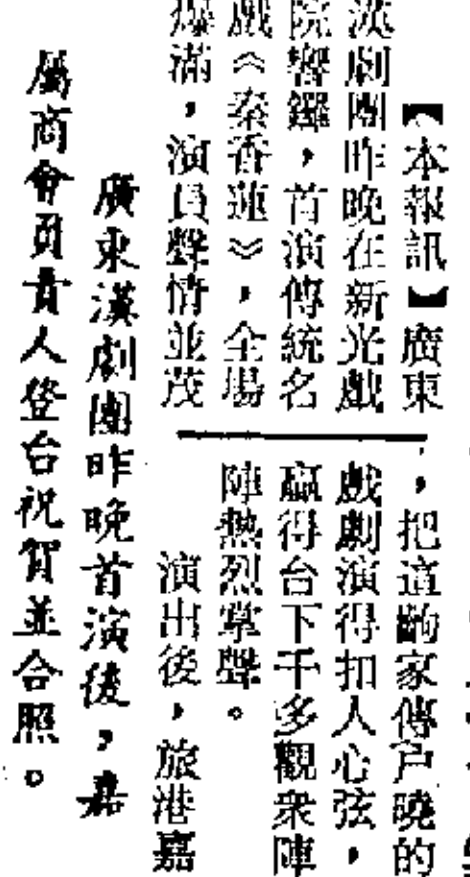 【本報訊】廣東
漢劇團昨晚在新光戲
院響鑼，首演傳統名
戲《秦香蓮》，全場
爆滿，演員聲情並茂
，把這齣家傳户曉的
戲劇演得扣人心弦，
贏得台下千多觀衆陣
陣熱烈掌聲。
演出後，旅港嘉
廣東漢劇團昨晚首演後，嘉
屬商會負責人登台祝賀並合照。